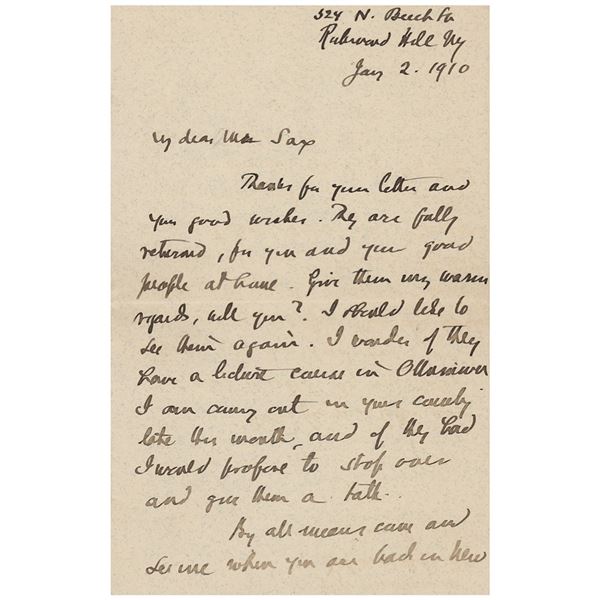 524 N. Beech St
Richmond Hill Ny
Jan 2. 1910
My dear Miss Sax
Thanks for your letter and
your good wishes. They are fully
returned, for you and your good
people at home. Give them my warm
regards, will you? I should like to
see them again. I wonder if they
have a lecture course in Ottumwa
I am coming out in your country
late this month, and if they had
I would propose to stop over
and give them a talk.
By all means come and
see me when you are back in here